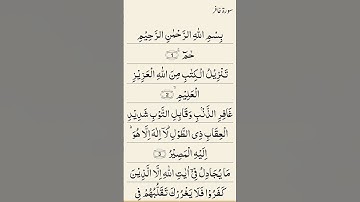 سورة غافر
بِسْمِ اللهِ الرَّحْمٰنِ الرَّحِيْمِ
حٰمٓ ۚ ﴿1﴾
تَنْزِيْلُ الْكِتٰبِ مِنَ اللهِ الْعَزِيْزِ
الْعَلِيْمِ ۙ ﴿2﴾
غَافِرِ الذَّنْۢبِ وَقَابِلِ التَّوْبِ شَدِيْدِ
الْعِقَابِ ذِى الطَّوْلِ ؕ لَاۤ اِلٰهَ اِلَّا هُوَ ؕ
اِلَيْهِ الْمَصِيْرُ ﴿3﴾
مَا يُجَادِلُ فِىْۤ اٰيٰتِ اللهِ اِلَّا الَّذِيْنَ
كَفَرُوْا فَلَا يَغْرُرْكَ تَقَلُّبُهُمْ فِى